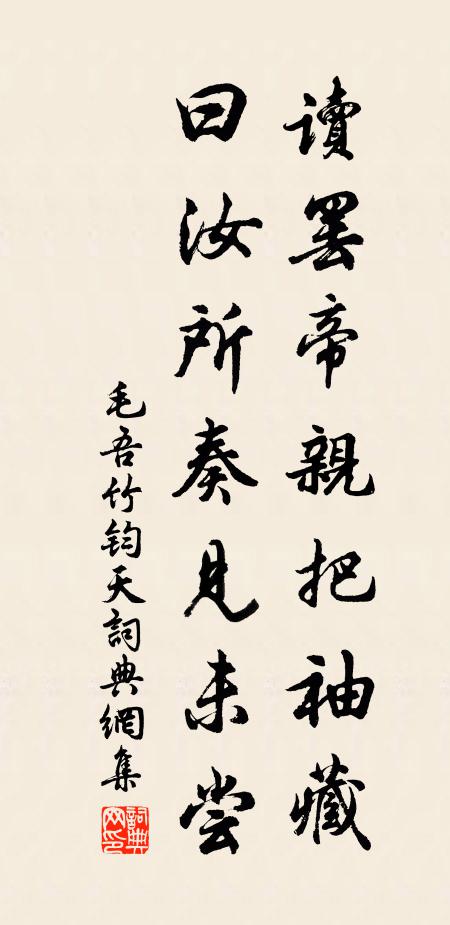 讀罷帝親把袖藏
曰汝所奏見未嘗
毛吾竹鈞天詞典網集
詞典网印